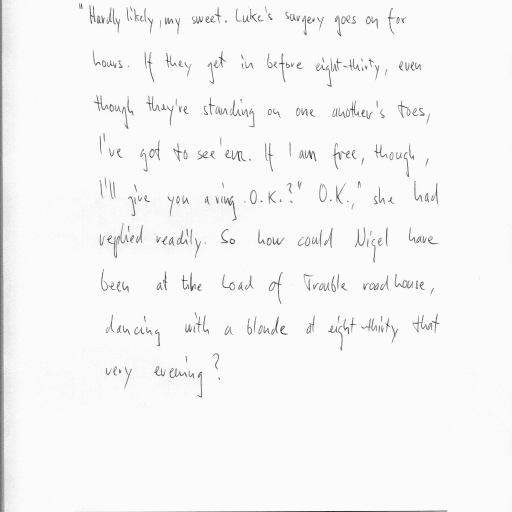 "Hardly likely, my sweet. Luke's surgery goes on for
hours. If they get in before eight-thirty, even
though they're standing on one another's toes,
I've got to see 'em. If I am free, though,
I'll give you a ring. O.K.?" "O.K.," she had
replied readily. So how could Nigel have
been at the Load of Trouble road house,
dancing with a blonde at eight-thirty that
very evening?